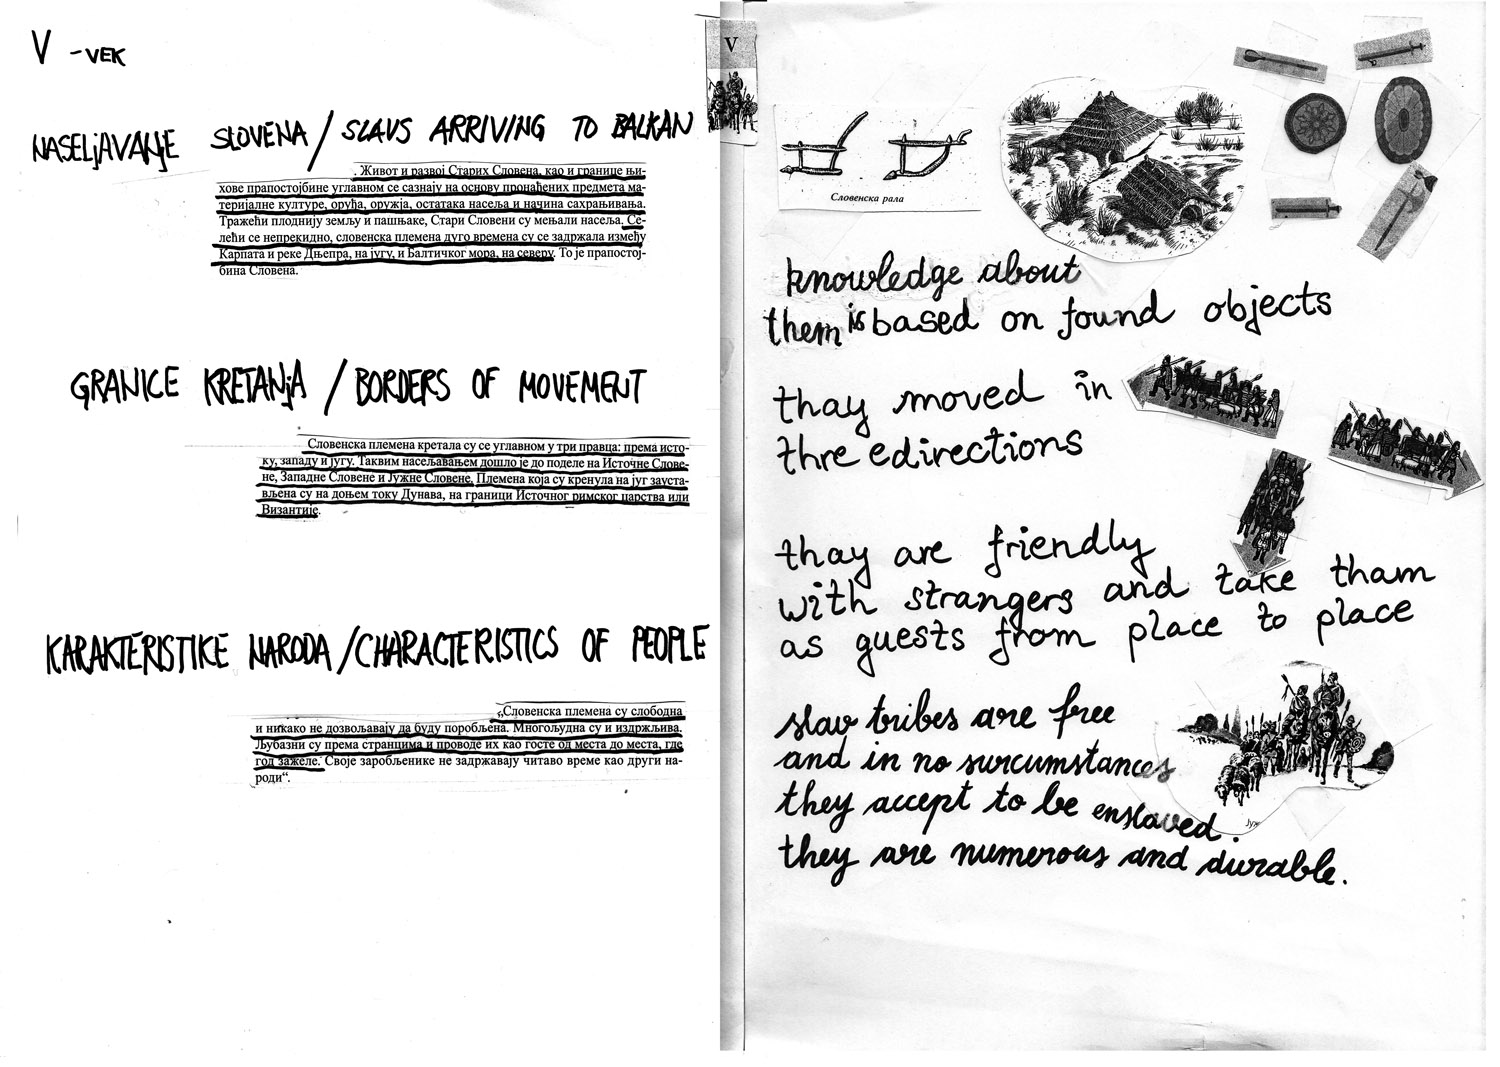 V - VEK
NASELjAVANjE SLOVENA / SLAVS ARRIVING TO BALKAN
. Живот и развој Старих Словена, као и границе њи-
хове прапостојбине углавном се сазнају на основу пронађених предмета ма-
теријалне културе, оруђа, оружја, остатака насеља и начина сахрањивања.
Тражећи плоднију земљу и пашњаке, Стари Словени су мењали насеља. Се-
лећи се непрекидно, словенска племена дуго времена су се задржала између
Карпата и реке Дњепра, на југу, и Балтичког мора, на северу. То је прапостој-
бина Словена.
GRANICE KRETANjA / BORDERS OF MOVEMENT
Словенска племена кретала су се углавном у три правца: према исто-
ку, западу и југу. Таквим насељавањем дошло је до поделе на Источне Слове-
не, Западне Словене и Јужне Словене. Племена која су кренула на југ зауста-
вљена су на доњем току Дунава, на граници Источног римског царства или
Византије.
KARAKTERISTIKE NARODA / CHARACTERISTICS OF PEOPLE
„Словенска племена су слободна
и никако не дозвољавају да буду поробљена. Многољудна су и издржљива.
Љубазни су према странцима и проводе их као госте од места до места, где
год зажеле. Своје заробљенике не задржавају читаво време као други на-
роди“.
V
Словенска рала
knowledge about
them is based on found objects
thay moved in
thre edirections
thay are friendly
with strangers and take tham
as guests from place to place
slav tribes are free
and in no surcumstances
they accept to be enslaved.
they are numerous and durable.
Јуж